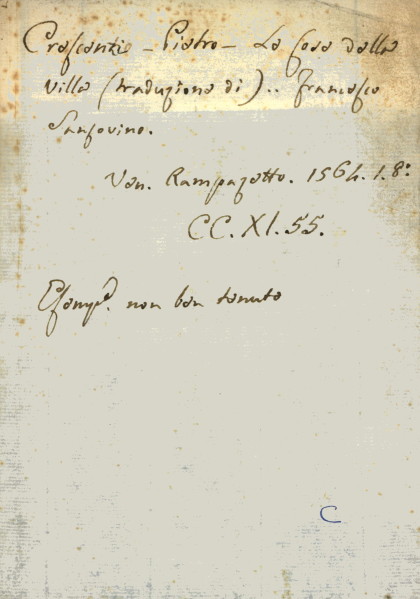 Crescentio - Pietro - Le Cose della
villa (traduzione di).. Francesco
Sansovino.
Ven. Rampazetto. 1564. 1.8º
CC.XI.55.
Esempᵉ. non ben tenuto
C